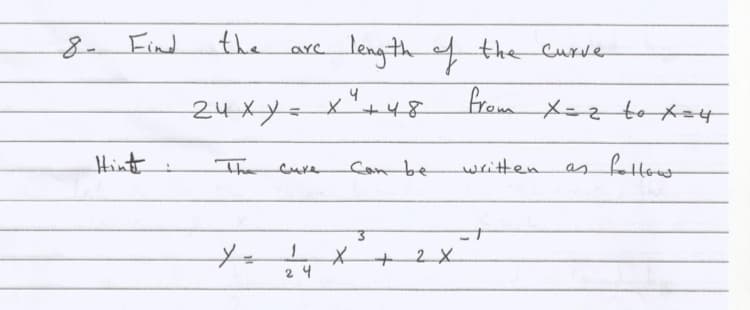 8- Find the arc length of the curve
24xy = x⁴+48 from x=2 to x=4
Hint : The cure can be written as follow
y = 1/24 x³ + 2x⁻¹